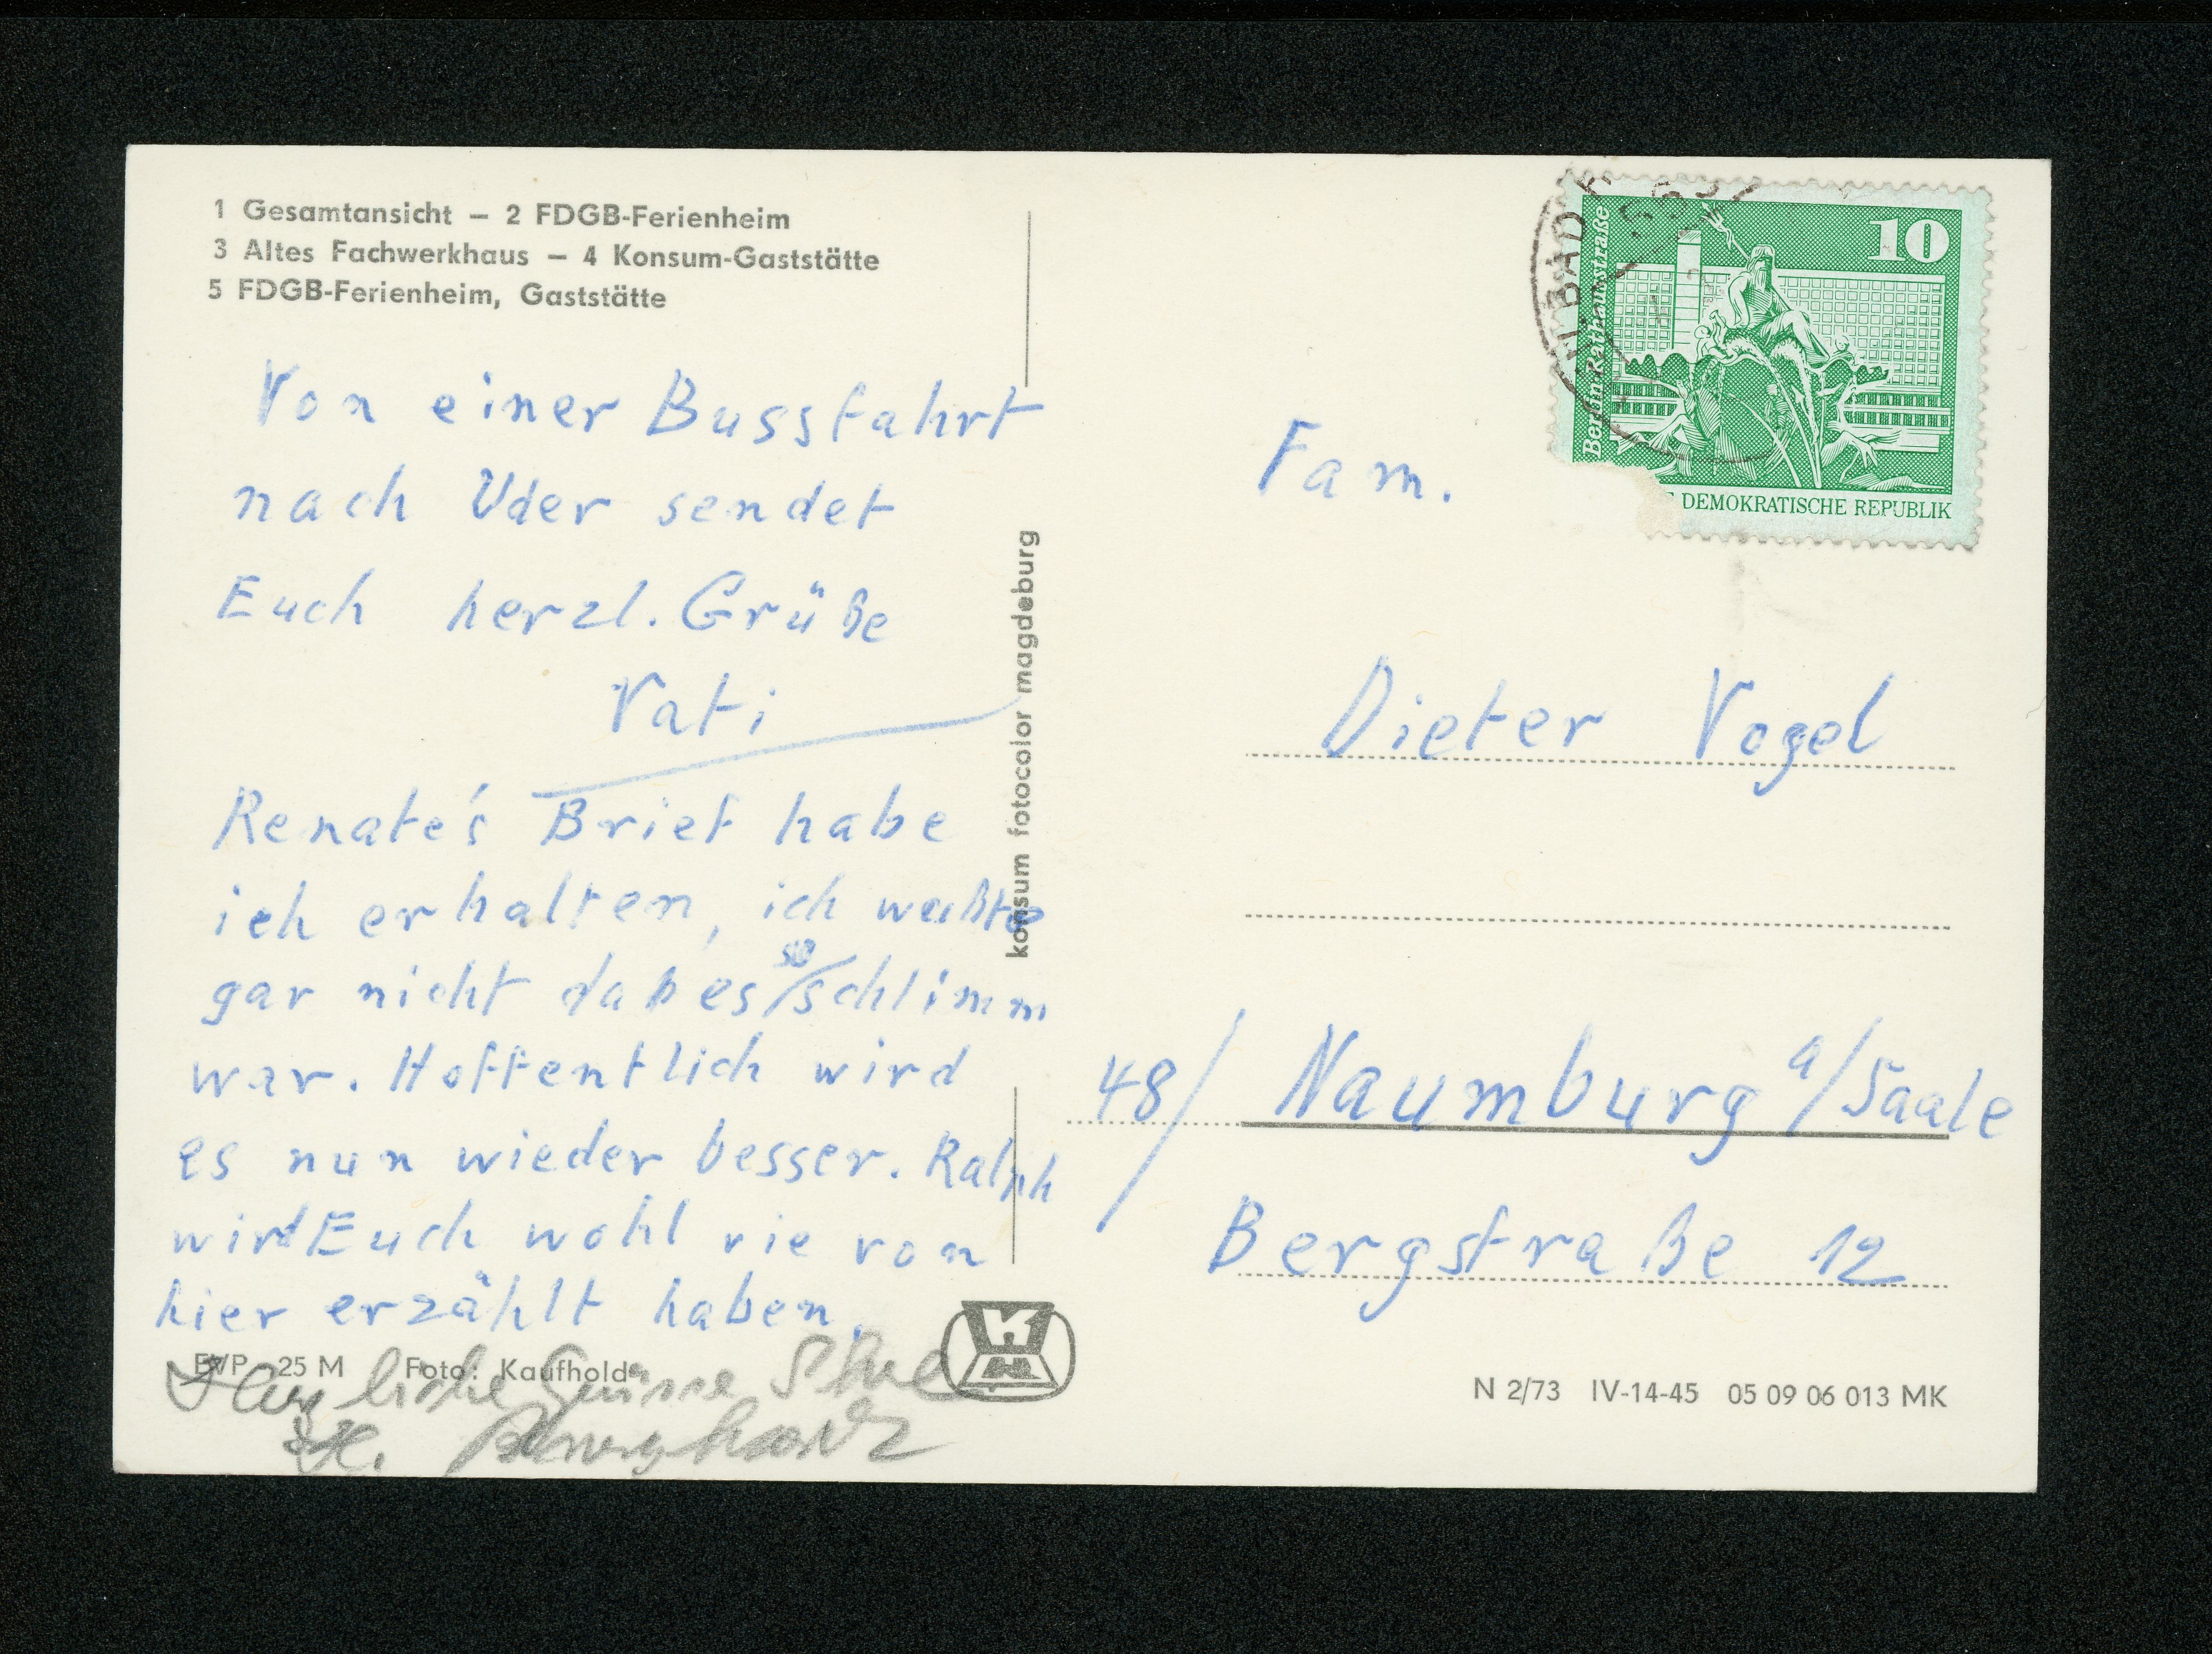 1 Gesamtansicht – 2 FDGB-Ferienheim
3 Altes Fachwerkhaus – 4 Konsum-Gaststätte
5 FDGB-Ferienheim, Gaststätte
Von einer Bussfahrt
nach Uder sendet
Euch herzl. Grüße
Vati
Renate's Brief habe
ich erhalten, ich wußte
gar nicht daß es so schlimm
war. Hoffentlich wird
es nun wieder besser. Ralph
wird Euch wohl vie von
hier erzählt haben.
EVP 25 M Foto: Kaufhold
Grüsse
H.
konsum fotocolor magdeburg
10
Berlin Rathausstraße
DEMOKRATISCHE REPUBLIK
Fam.
Dieter Vogel
48/ Naumburg a/Saale
Bergstraße 12
N 2/73 IV-14-45 05 09 06 013 MK